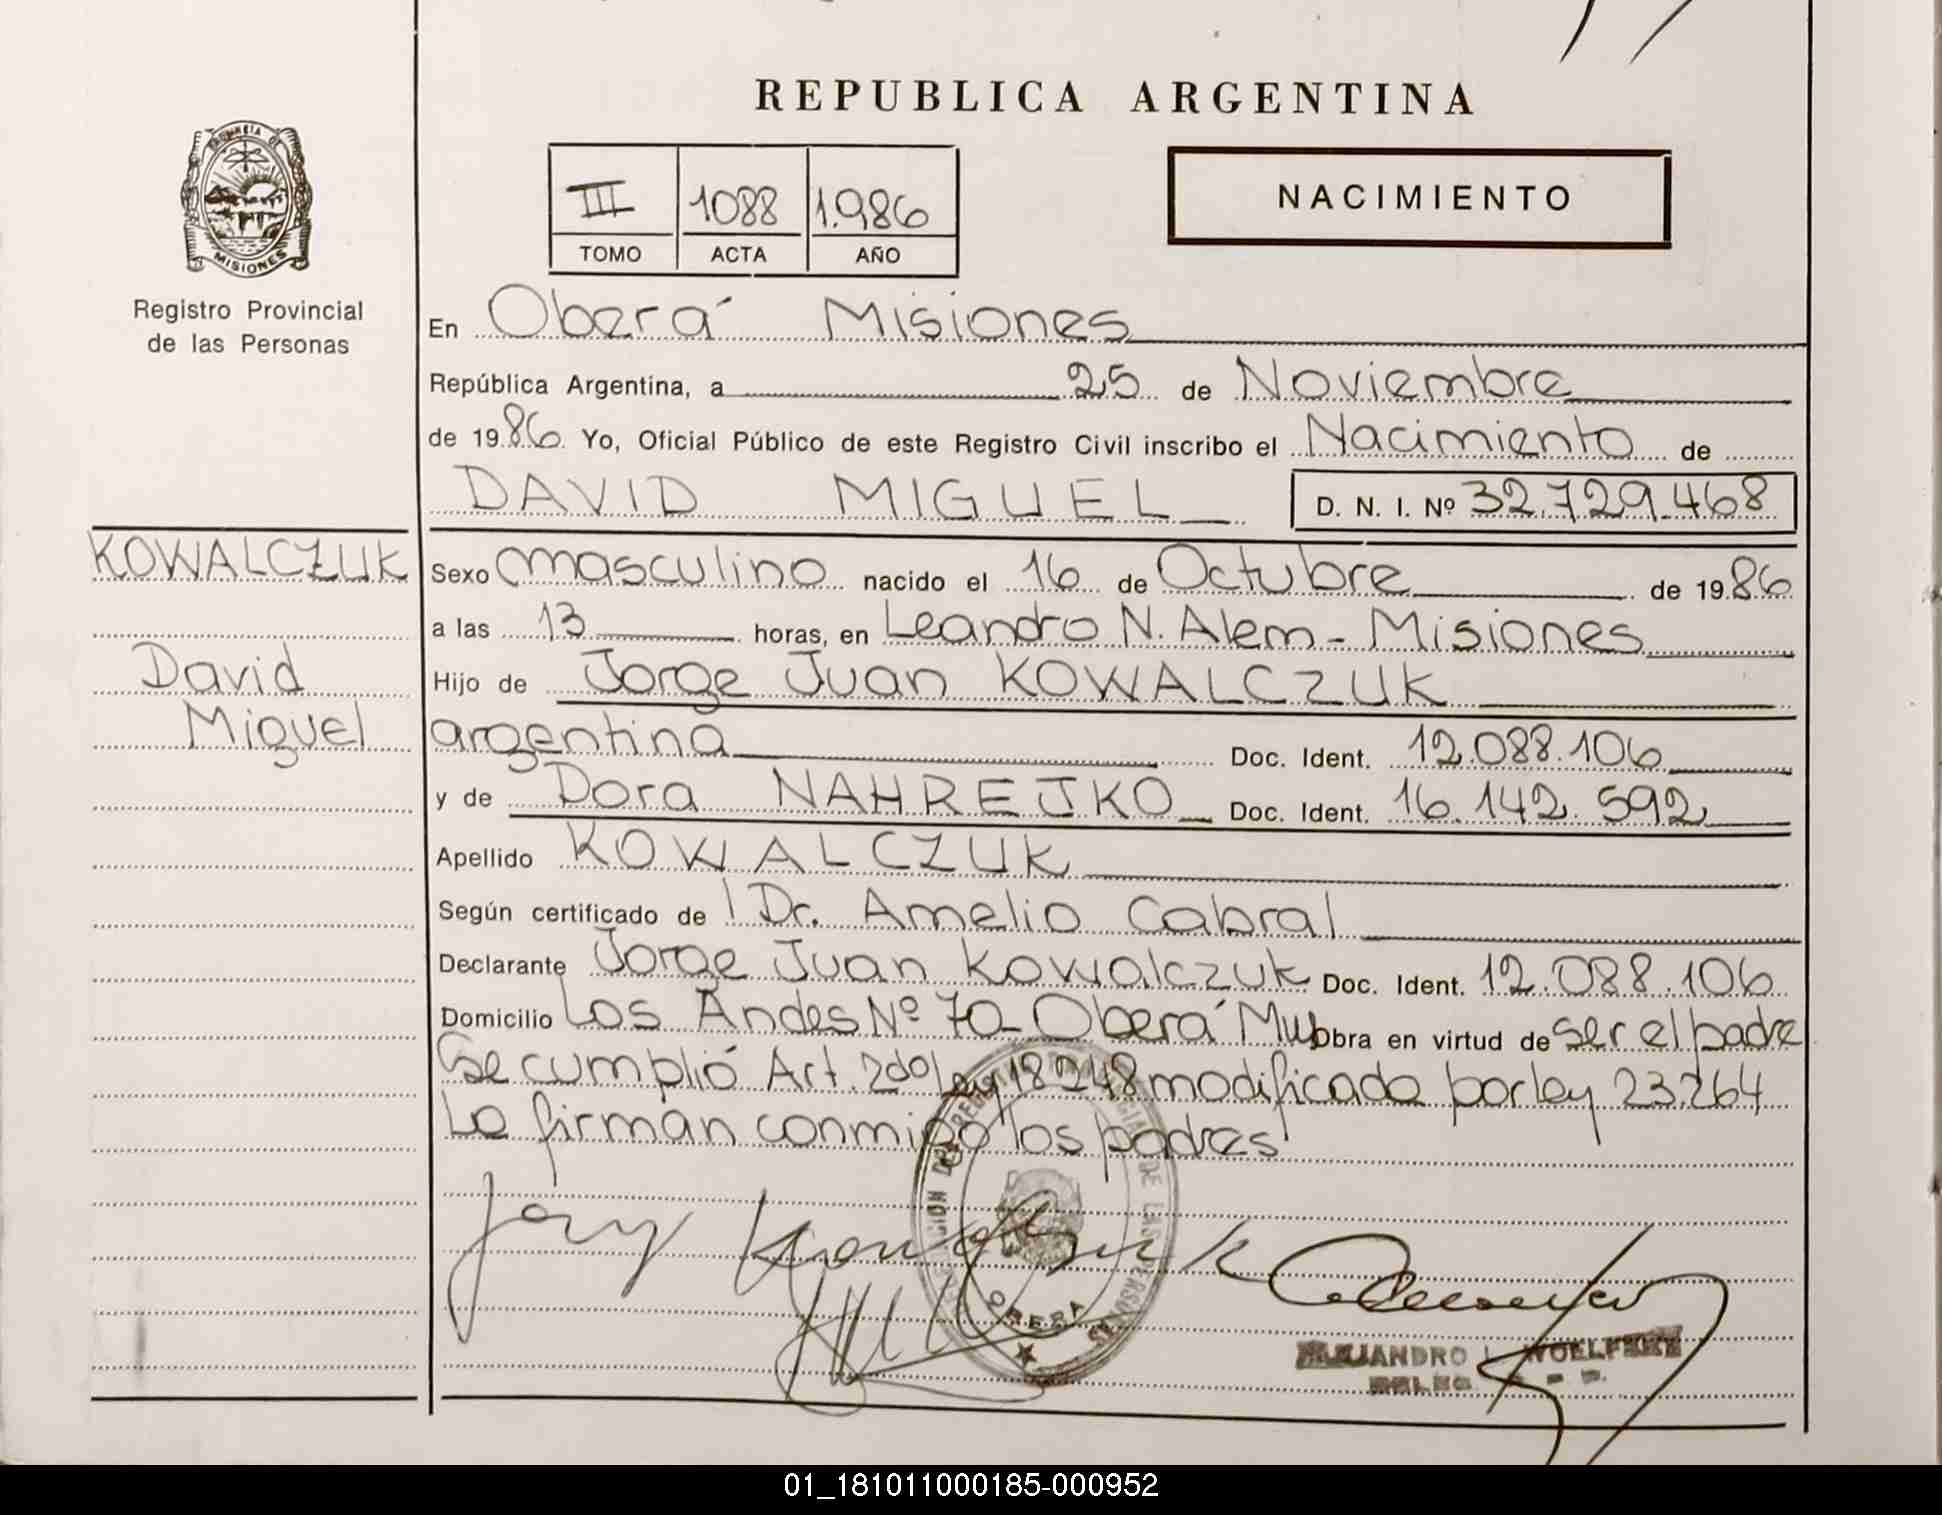 REPUBLICA ARGENTINA
PROVINCIA DE MISIONES
Registro Provincial
de las Personas
III 1088 1.986
TOMO ACTA AÑO
NACIMIENTO
En Oberá Misiones
República Argentina, a 25 de Noviembre
de 1986 Yo, Oficial Público de este Registro Civil inscribo el Nacimiento de
DAVID MIGUEL D. N. I. Nº 32.729.468
KOWALCZUK
David
Miguel
Sexo masculino nacido el 16 de Octubre de 1986
a las 13 horas, en Leandro N. Alem - Misiones
Hijo de Jorge Juan KOWALCZUK
argentina Doc. Ident. 12.088.106
y de Dora NAHREJKO Doc. Ident. 16.142.592
Apellido KOWALCZUK
Según certificado de Dr. Amelio Cabral
Declarante Jorge Juan Kowalczuk Doc. Ident. 12.088.106
Domicilio Los Andes Nº 70 - Oberá Mns Obra en virtud de ser el padre
Se cumplió Art. 2do ley 18248 modificado por ley 23264
Lo firman conmigo los padres
OBERA
01_181011000185-000952